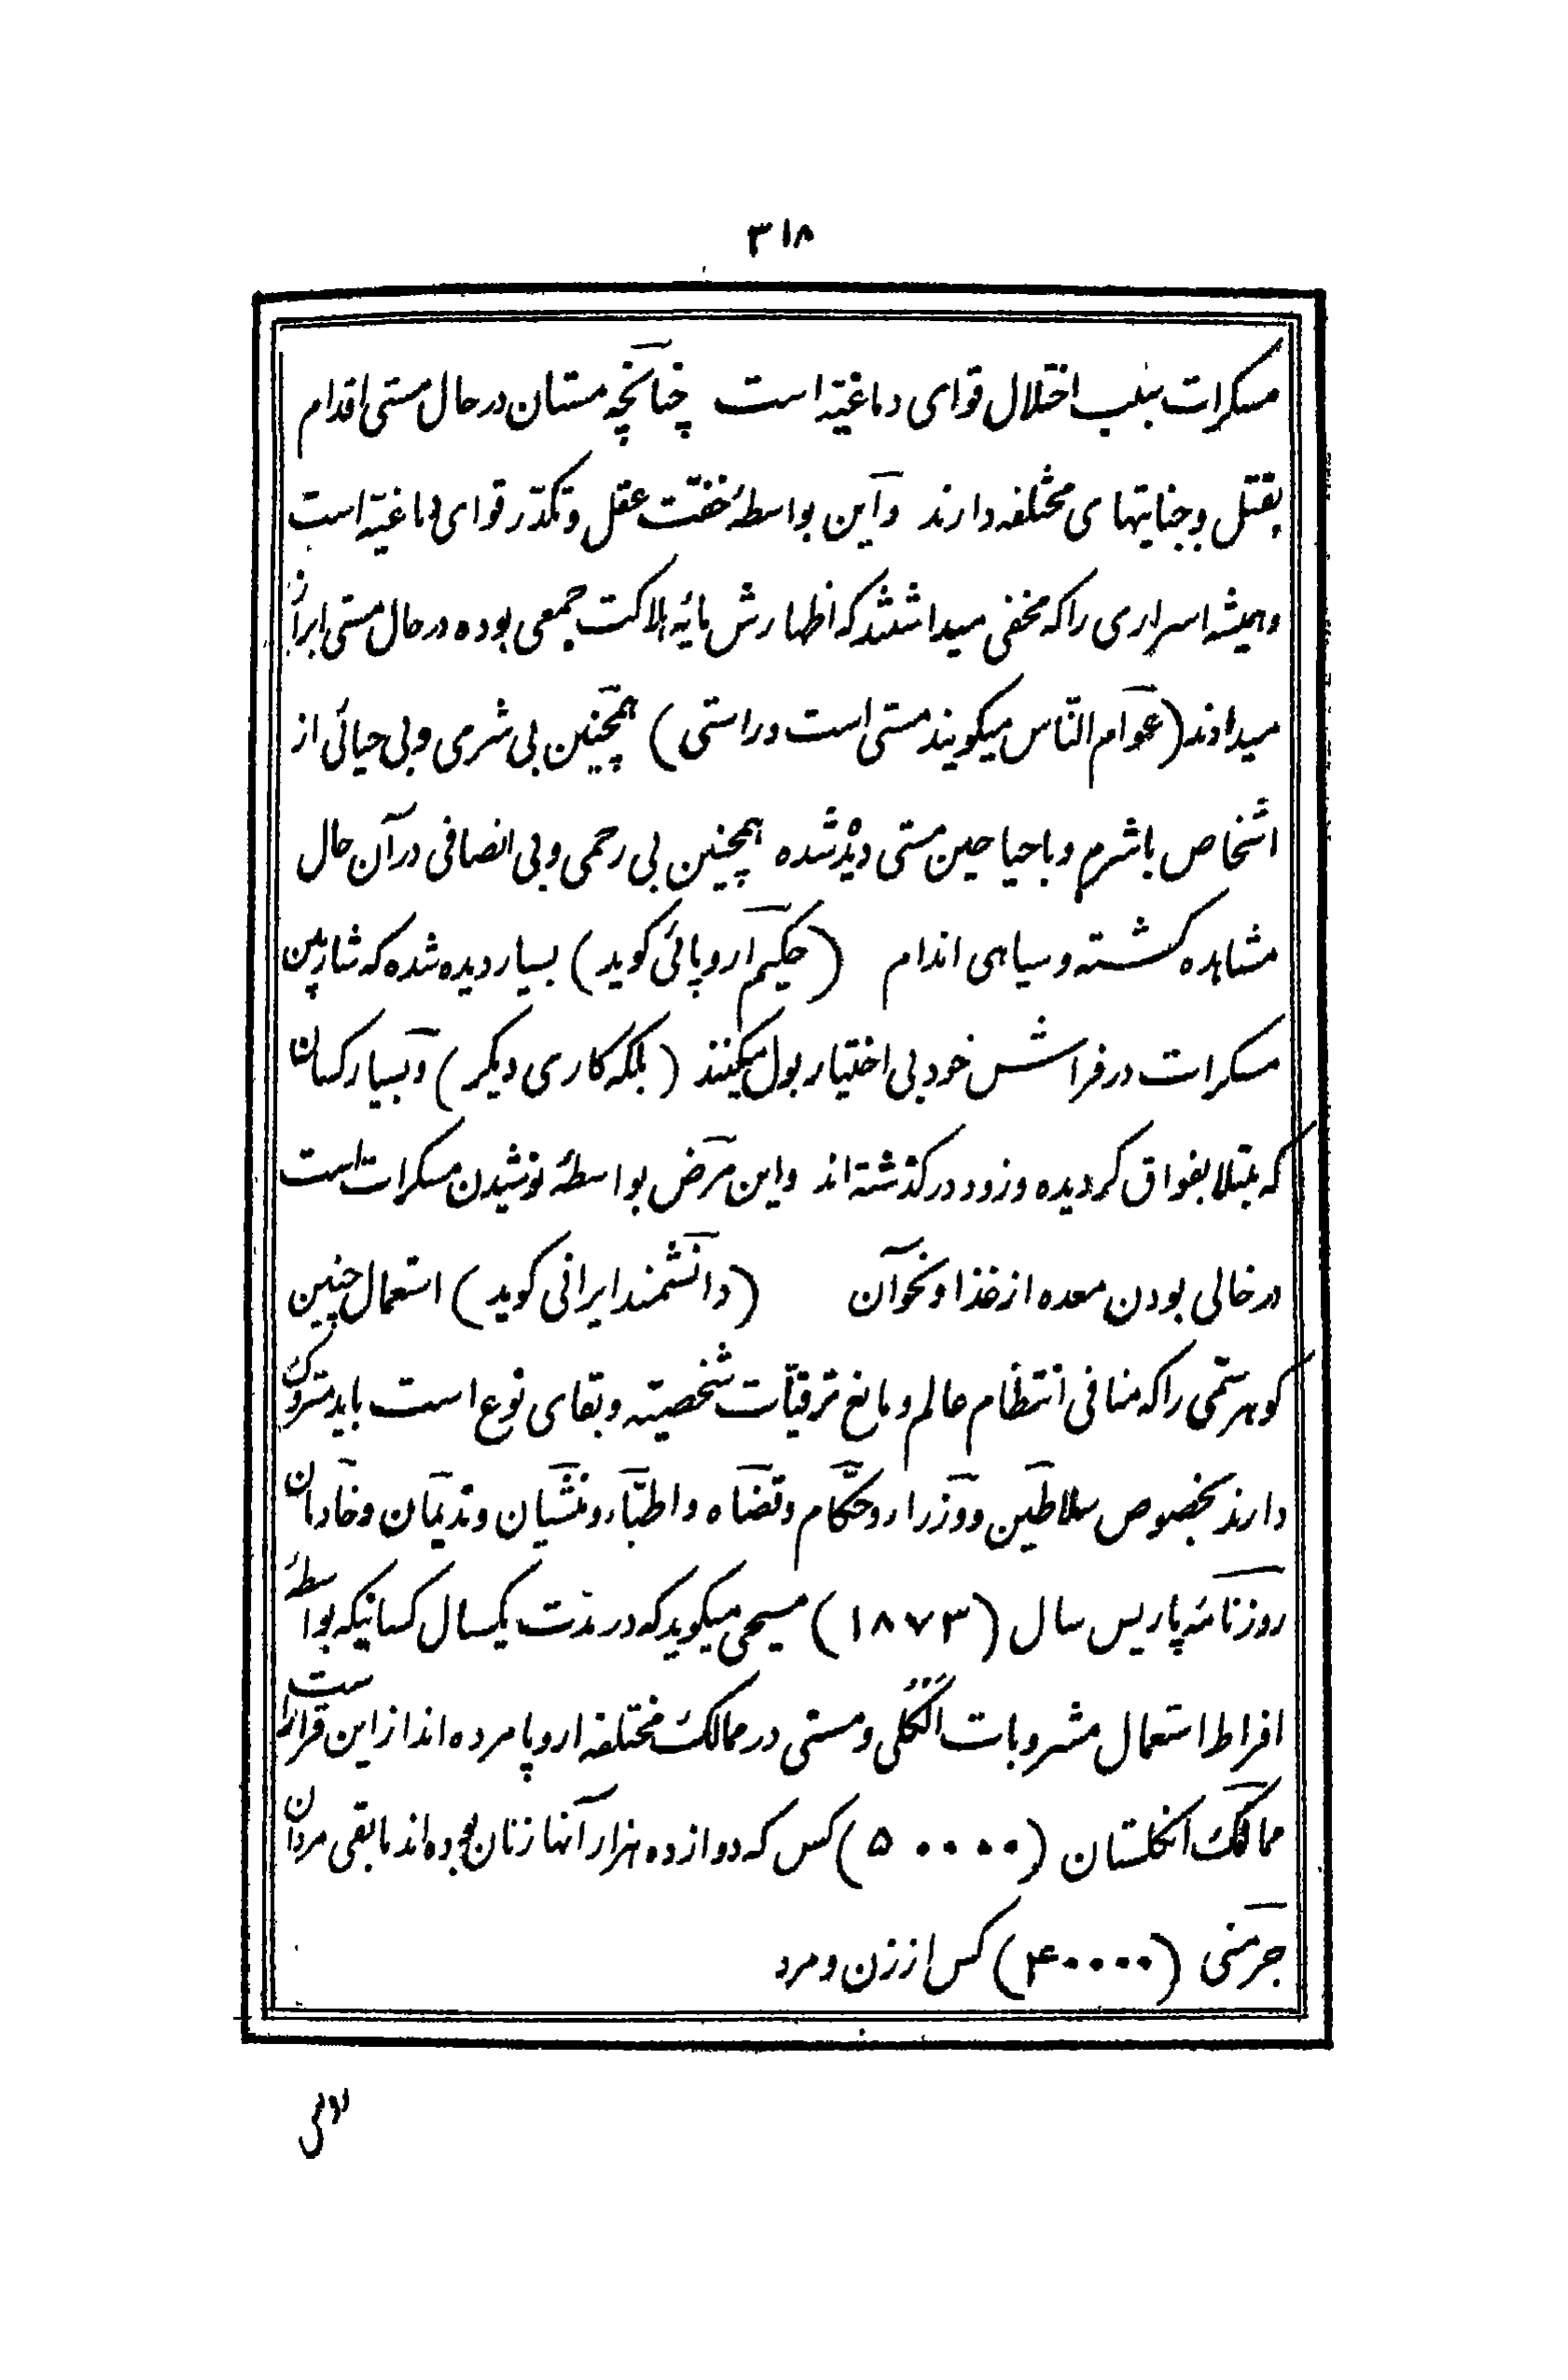 ۳۱۸
مسکرات سبب اختلال قوای دماغیّه است چنانچه مستان در حال مستی اقدام
بقتل و جنایتهای مختلفه دارند و این بواسطهٔ خفّت عقل و تکدّر قوای دماغیّه است
و همیشه اسراری را که مخفی میداشتند که اظهارش مایهٔ هلاکت جمعی بوده در حال مستی ابراز
میدادند (عوام النّاس میکویند مستی است و راستی) همچنین بی شرمی و بی حیائی از
اشخاص باشرم و باحیا حین مستی دیده شده همچنین بی رحمی و بی انصافی در آن حال
مشاهده کشته و سیاهی اندام (حکیم اروپائی کوید) بسیار دیده شده که شاربین
مسکرات در فراش خود بی اختیار بول میکنند (بلکه کاری دیکر) و بسیار کسان
که مبتلا بفواق کردیده و زود درکذشته‌اند و این مرض بواسطهٔ نوشیدن مسکرات است
در خالی بودن معده از غذا و نحو آن (دانشمند ایرانی کوید) استعمال چنین
کوهر سّمی را که منافی انتظام عالم و مانع ترقیّات شخصیّه و بقای نوع است باید متروک
دارند بخصوص سلاطین و وزراء و حکّام و قضاه و اطبّاء و منشیان و ندیمان و خادمان
روزنامهٔ پاریس سال (۱۸۷۳) مسیحی میکوید که در مدّت یکسال کسانیکه بواسطهٔ
افراط استعمال مشروبات الکلی و مستی در ممالک مختلفه اروپا مرده‌اند از این قرار است
ممالک انکلستان (۵۰۰۰۰) کس که دوازده هزار آنها زنان بوده‌اند مابقی مردان
جرمنی (۴۰۰۰۰) کس از زن و مرد